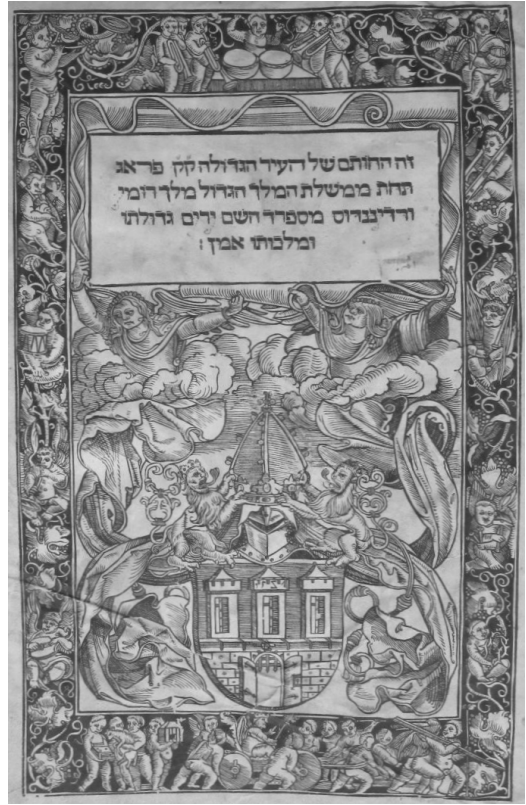 זה החותם של העיר הגדולה קק פראג
תחת ממשלת המלך הגדול מלך רומי
ורדיננדוס מספרד השם ירים גדולתו
ומלכותו אמן :